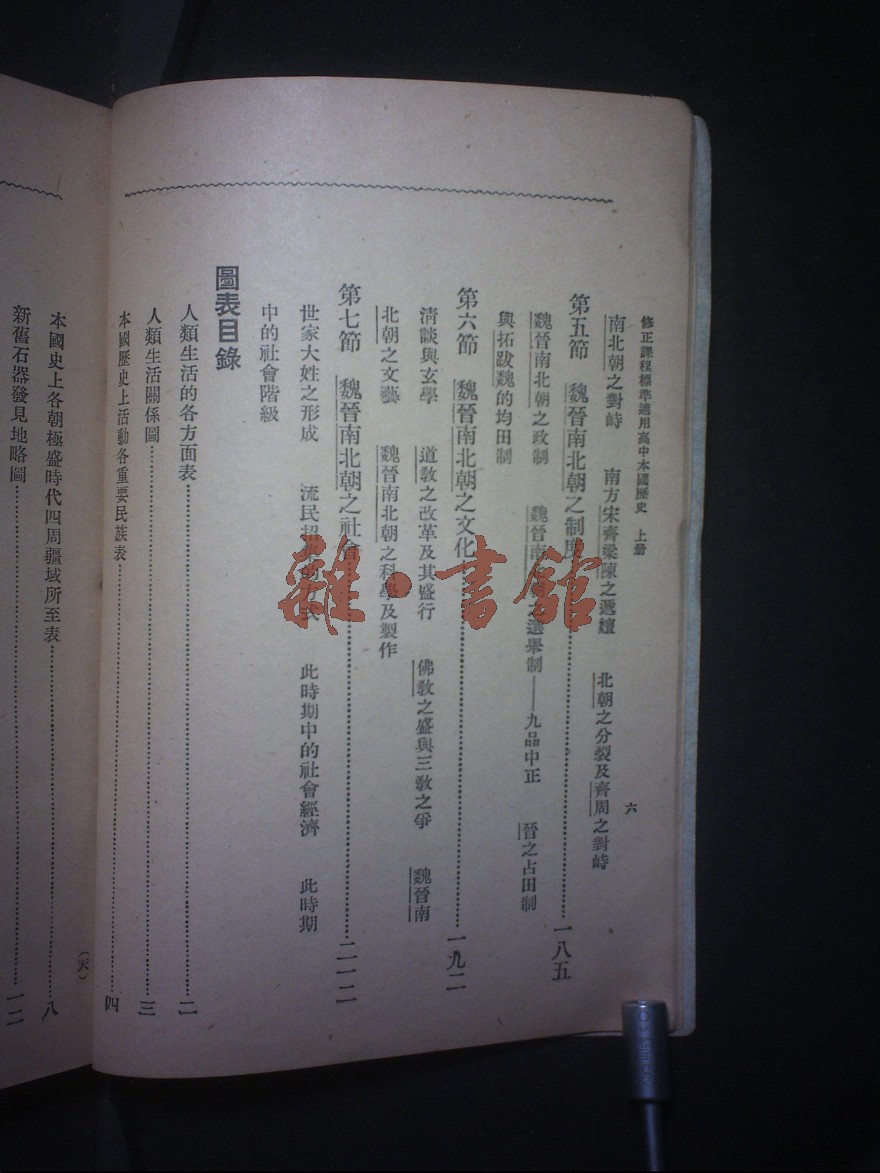 修正課程標準適用高中本國歷史 上册
六
南北朝之對峙 南方宋齊梁陳之遞嬗 北朝之分裂及齊周之對峙
第五節 魏晉南北朝之制度 一八五
魏晉南北朝之政制 魏晉南北朝之選舉制——九品中正 晉之占田制
與拓跋魏的均田制
第六節 魏晉南北朝之文化 一九二
清談與玄學 道敎之改革及其盛行 佛敎之盛與三敎之爭 魏晉南
北朝之文藝 魏晉南北朝之科學及製作
第七節 魏晉南北朝之社會 二一二
世家大姓之形成 流民 此時期中的社會經濟 此時期
中的社會階級
圖表目錄
人類生活的各方面表 二
人類生活關係圖 三
本國歷史上活動各重要民族表 四
(天)
本國史上各朝極盛時代四周疆域所至表 八
新舊石器發見地略圖 一二
雜·書館